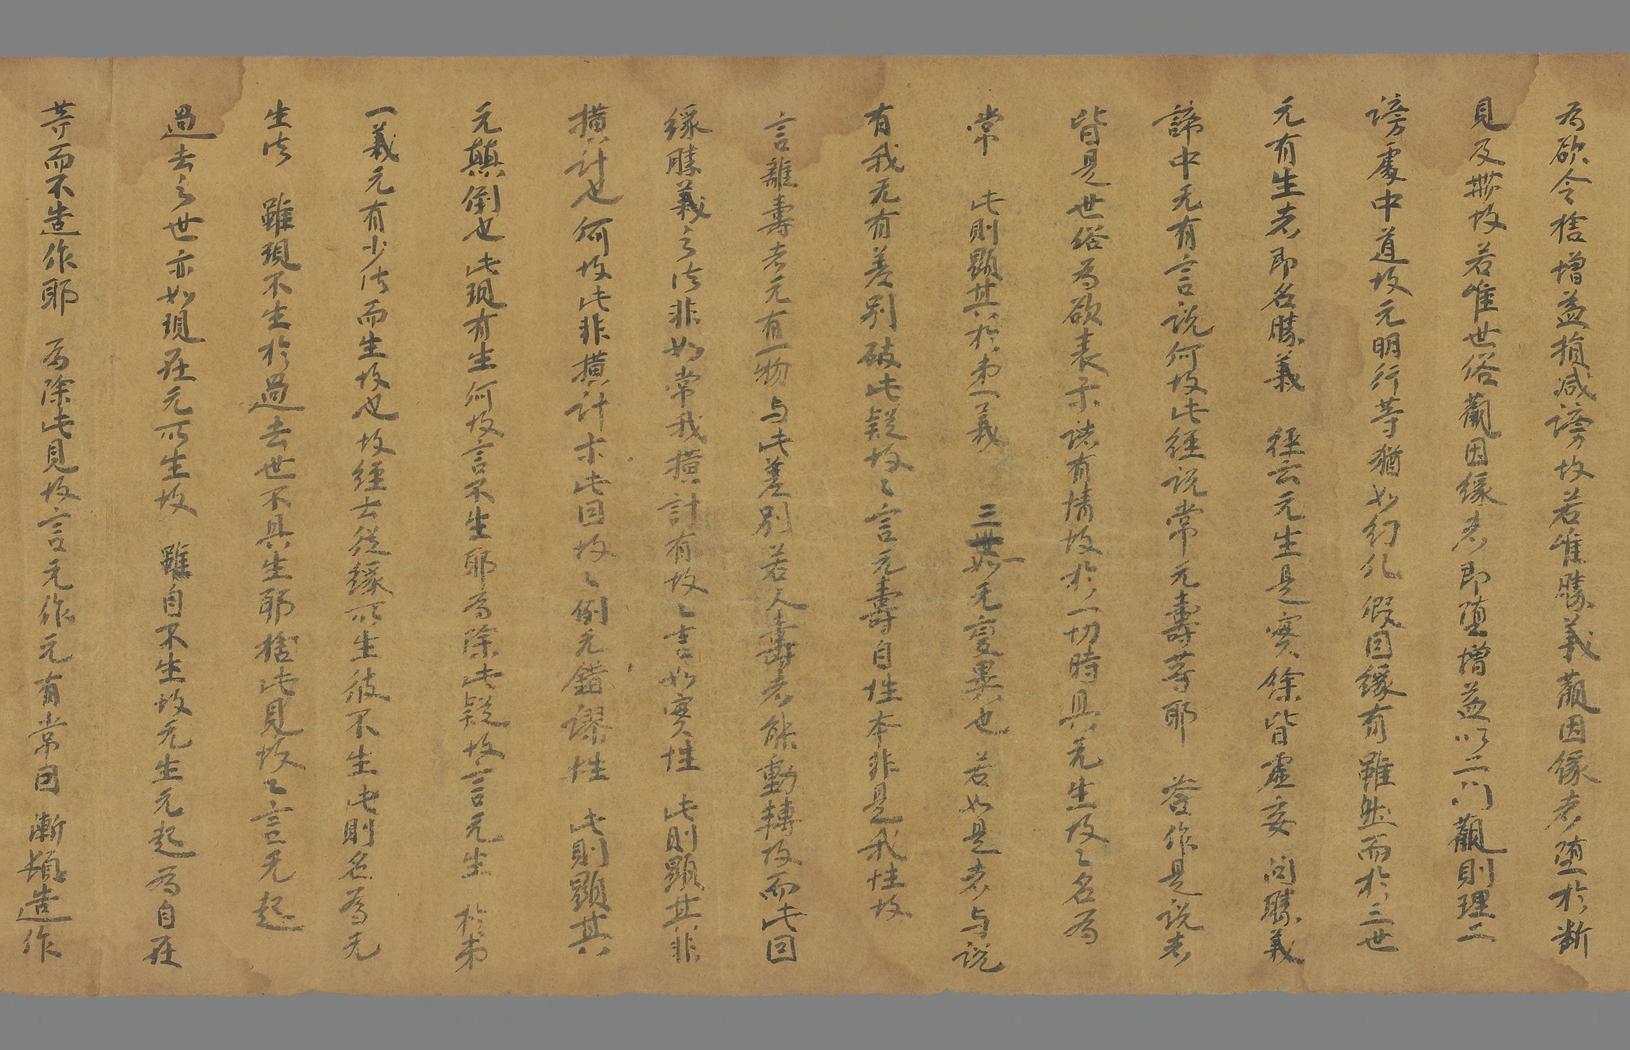 為欲令捨增益損減謗故若唯勝義觀因緣者墮於斷
見及撥故若唯世俗觀因緣者即墮增益以二門觀則理二
謗處中道故无明行等猶如幻化假因緣有雖然而於三世
元有生者即名勝義 經云元生是實餘皆虛妄 問勝義
諦中无有言說何故此經說常元壽等耶 答作是說者
皆是世俗為欲表示諸有情故於一切時具无生故〻名為
常 此則顯其於第一義 三世如无變異也 若如是者与說
有我无有差別破此疑故〻言元壽自性本非是我性故
言離壽者元有一物与此差別若人壽者能動轉故而此因
緣勝義之法非如常我橫計有故〻言如實性 此則顯其非
橫計也何故此非橫計示此因故〻倒无錯謬性 此則顯其
元顛倒也此現有生何故言不生耶為除此疑故言元生 於第
一義元有少法而生故也故經云從緣所生彼不生此則名為无
生法 雖現不生於過去世不具生耶捨此見故〻言无起
過去之世亦如現在元所生故 雖自不生故元生元起為自在
等而不造作耶 為除此見故言元作元有常因漸頓造作